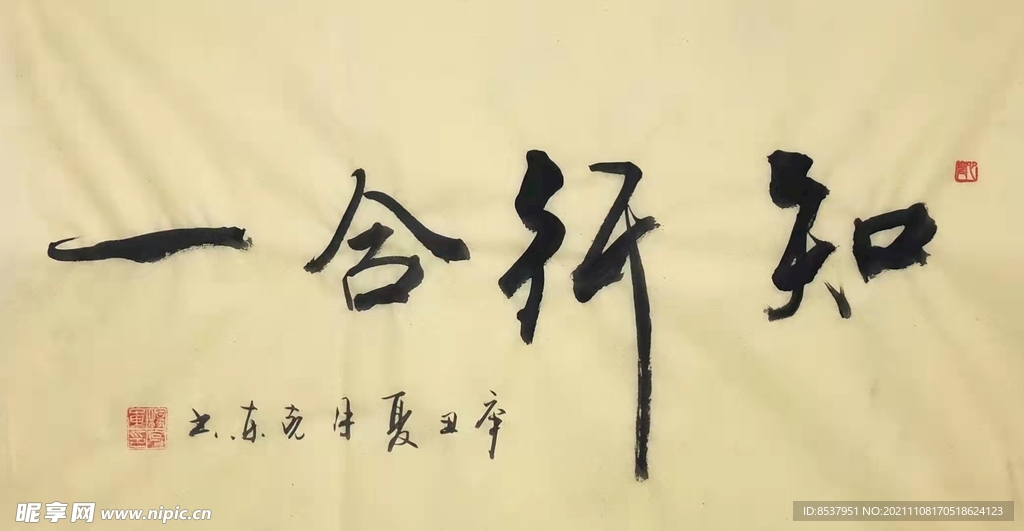 知行合一
辛丑夏月克东书
昵享网 www.nipic.cn
ID:8537951 NO:20211108170518624123